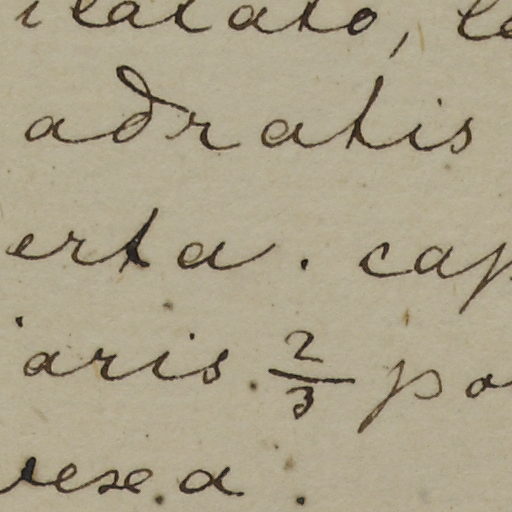 ilatato, le
adratis
erta. cap
aris 2/3 po
resea.